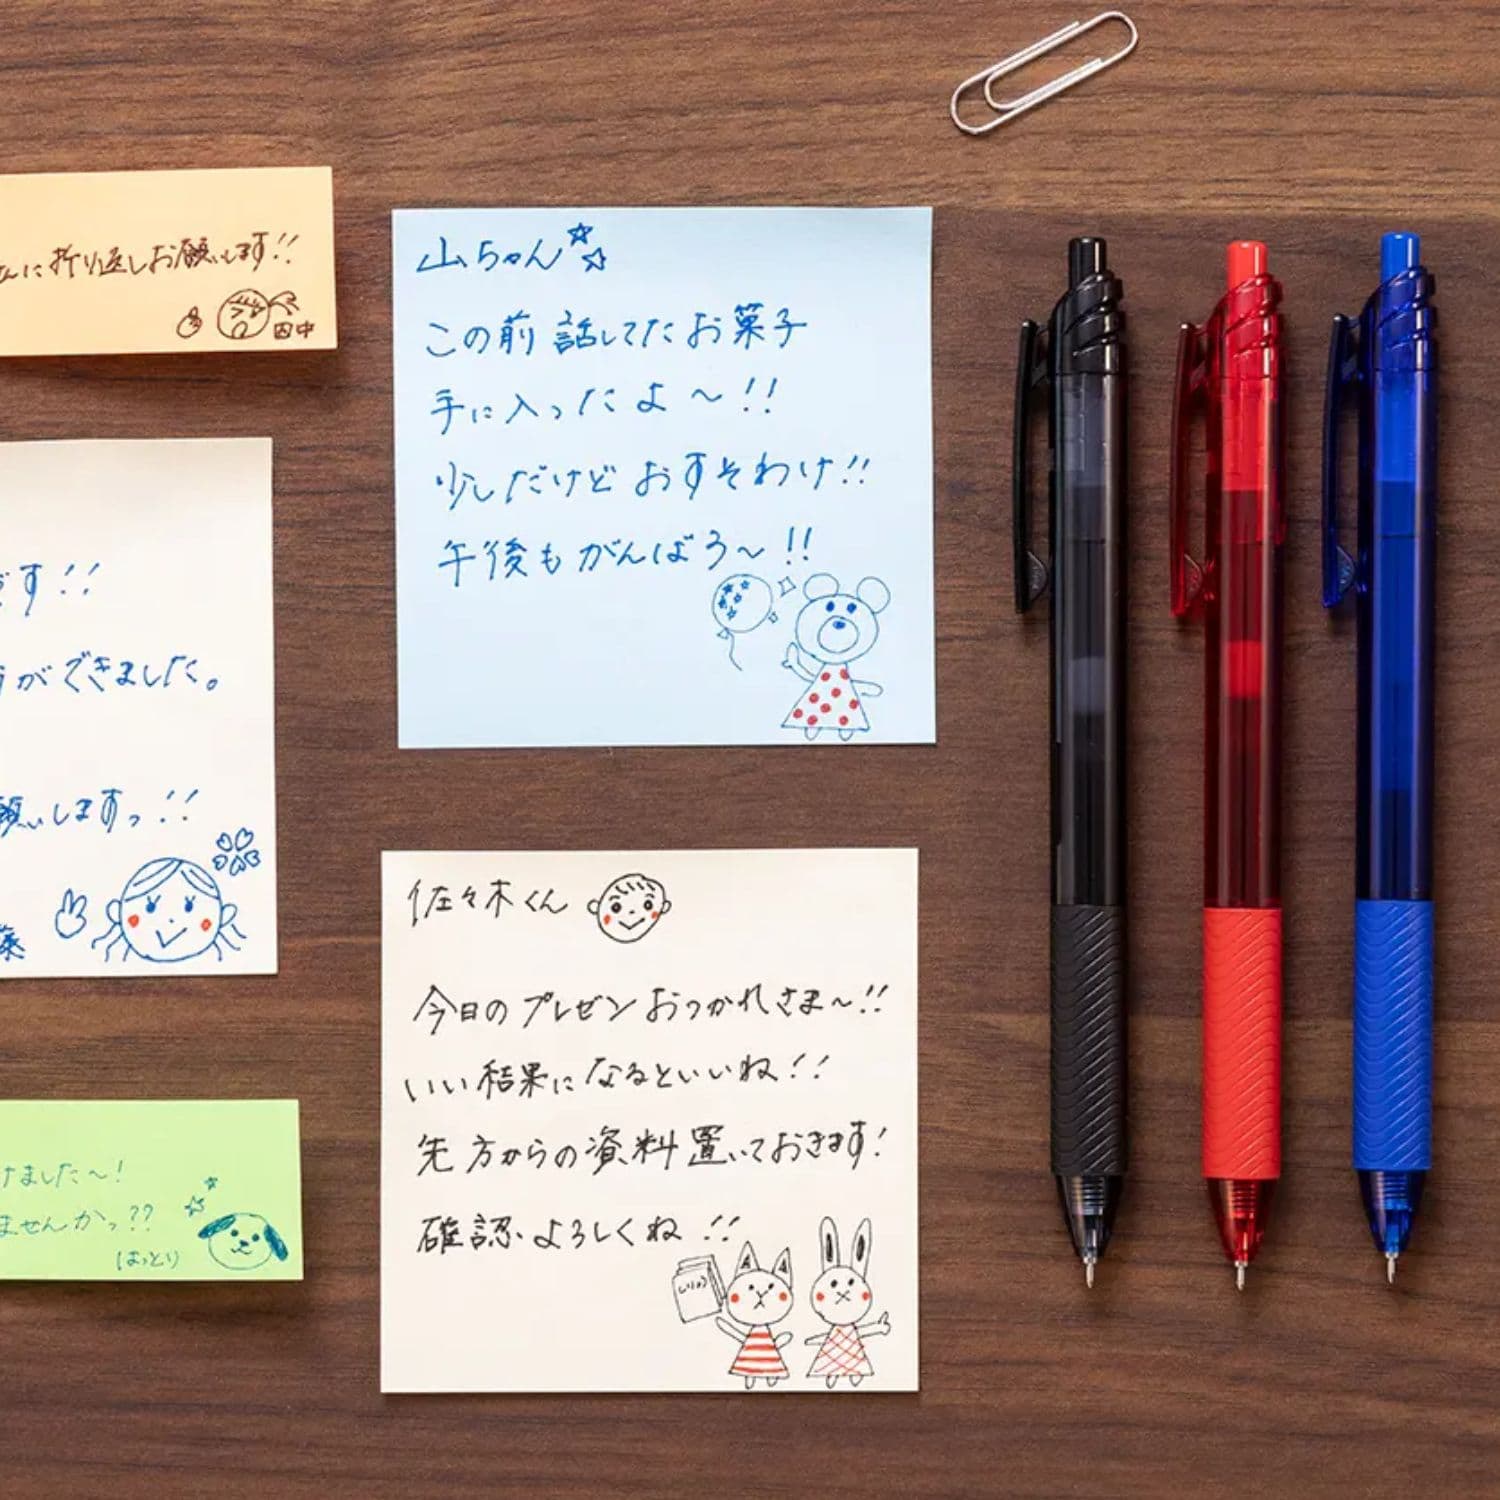 さんに折り返しお願いします!!
田中
です!!
ができました。
願いしますっ!!
葉
けました〜!
ませんかっ??
はっとり
山ちゃん
この前話してたお菓子
手に入ったよ〜!!
少しだけどおすそわけ!!
午後もがんばろ〜!!
佐々木くん
今日のプレゼンおつかれさま〜!!
いい結果になるといいね!!
先方からの資料置いておきます!
確認よろしくね!!
しりょう